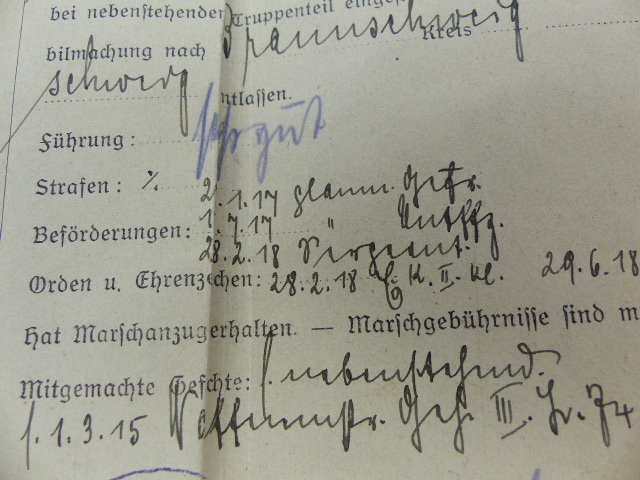 bei nebenstehenden Truppenteil
bilmachung nach Braunschweig Kreis
schweig entlassen.
Führung: sehr gut
Strafen: ·/.
2.1.17 Gefr.
Beförderungen: 1.7.17 " Untffz.
28.2.18 Sergeant.
Orden u. Ehrenzeichen: 28.2.18 E. K. II. Kl. 29.6.18
Hat Marschanzug erhalten. — Marschgebührnisse sind
Mitgemachte Gefechte: s. nebenstehend.
1.3.15 III.